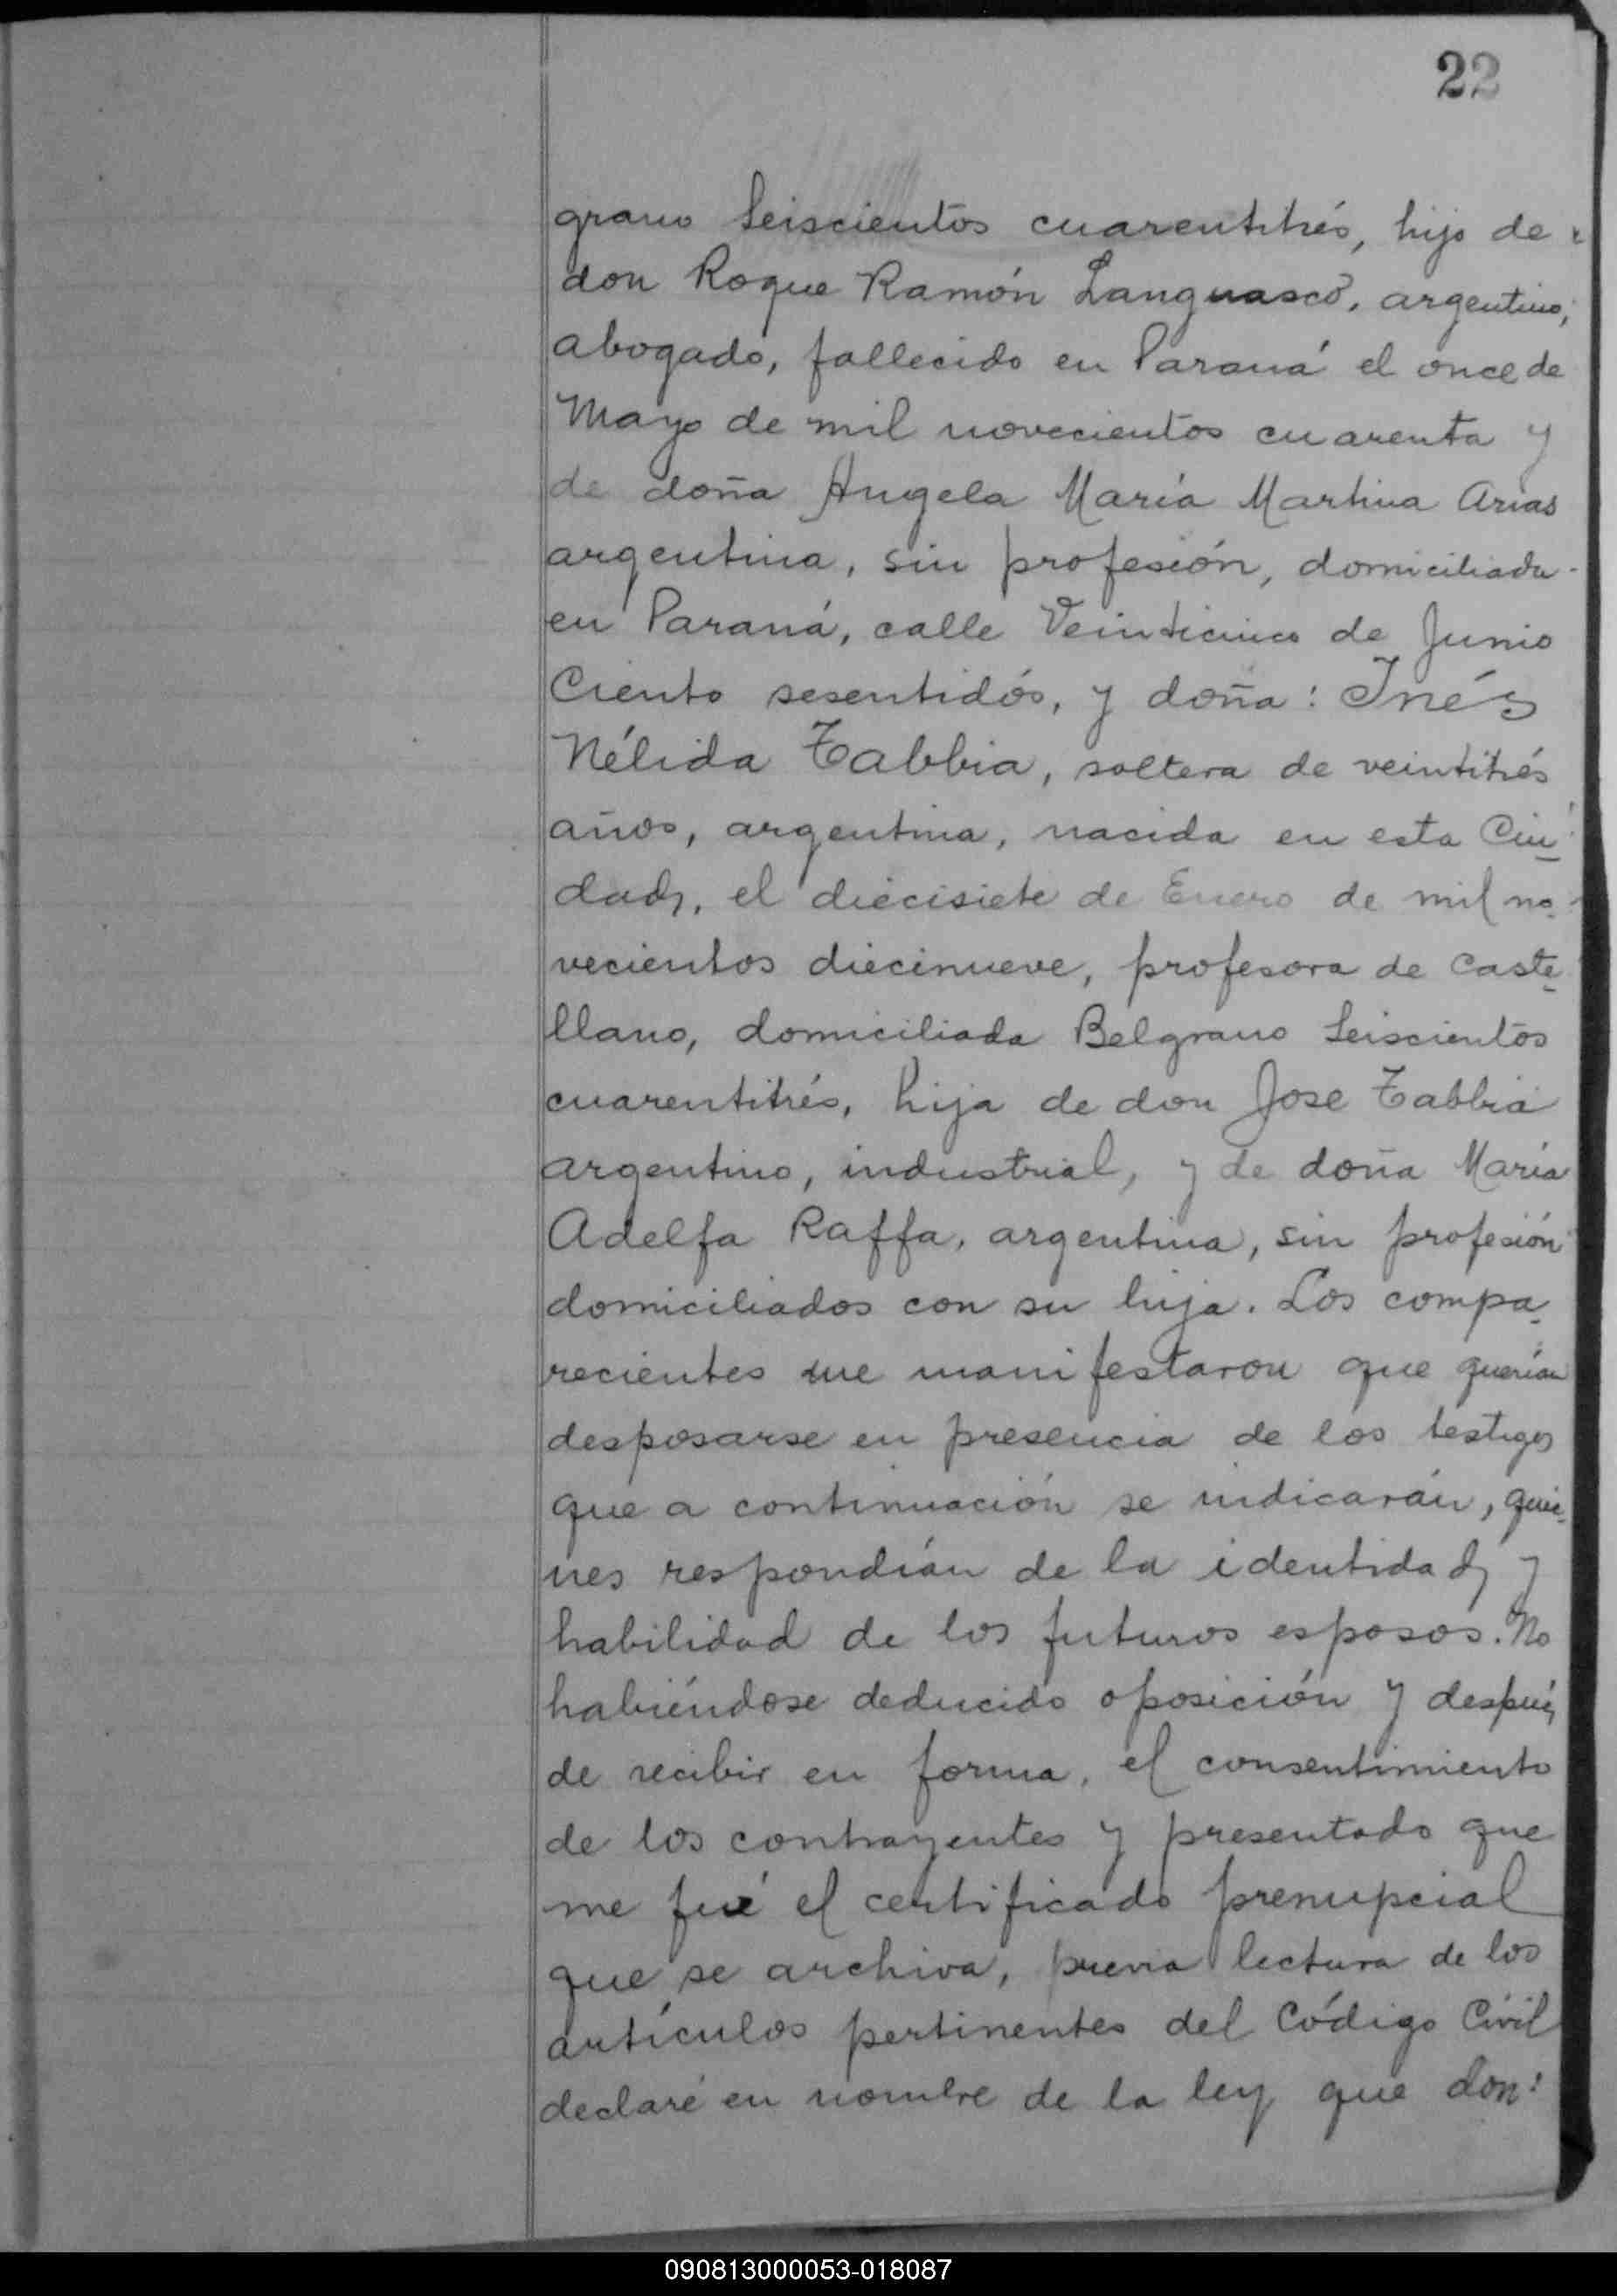 22
grano Seiscientos cuarentitrés, hijo de
don Roque Ramón Languasco, argentino,
abogado, fallecido en Paraná el once de
Mayo de mil novecientos cuarenta y
de doña Angela María Martina Arias
argentina, sin profesión, domiciliada
en Paraná, calle Veinticinco de Junio
Ciento sesentidós, y doña: Inés
Nélida Tabbia, soltera de veintitrés
años, argentina, nacida en esta Ciu
dad, el diecisiete de Enero de mil no
vecientos diecinueve, profesora de Caste
llano, domiciliada Belgrano Seiscientos
cuarentitrés, hija de don Jose Tabbia
argentino, industrial, y de doña María
Adelfa Raffa, argentina, sin profesión
domiciliados con su hija. Los compa
recientes me manifestaron que querían
desposarse en presencia de los testigos
que a continuación se indicarán, quie
nes respondían de la identidad y
habilidad de los futuros esposos. No
habiéndose deducido oposición y después
de recibir en forma, el consentimiento
de los contrayentes y presentado que
me fué el certificado prenupcial
que se archiva, previa lectura de los
artículos pertinentes del Código Civil
declaré en nombre de la ley que don:
090813000053-018087